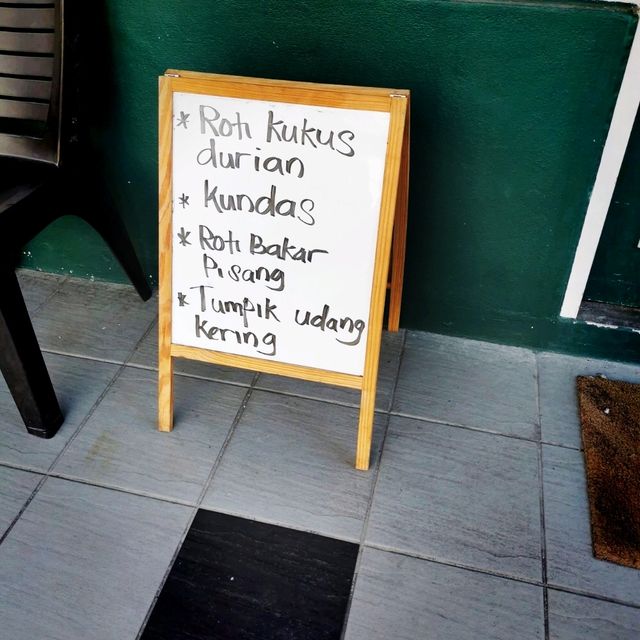 * Roti Kukus
durian
* Kundas
* Roti Bakar
Pisang
* Tumpik udang
kering